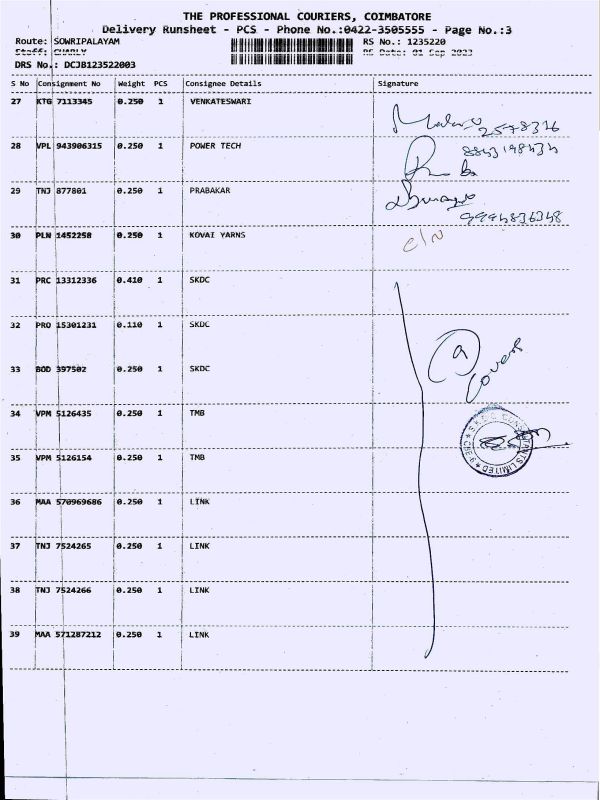 THE PROFESSIONAL COURIERS, COIMBATORE
Delivery Runsheet - PCS - Phone No.:0422-3505555 - Page No.:3
Route: SOWRIPALAYAM RS No.: 1235220
Staff: RS Date: 01 Sep 2023
DRS No.: DCJB123522003
S No Consignment No Weight PCS Consignee Details Signature
27 KTG 7113345 0.250 1 VENKATESWARI
28 VPL 943906315 0.250 1 POWER TECH
29 TNJ 877801 0.250 1 PRABAKAR
9994836348
30 PLN 1452258 0.250 1 KOVAI YARNS
31 PRC 13312336 0.410 1 SKDC
32 PRO 15301231 0.110 1 SKDC
9
Covers
33 BOD 397502 0.250 1 SKDC
34 VPM 5126435 0.250 1 TMB
35 VPM 5126154 0.250 1 TMB
36 MAA 570969686 0.250 1 LINK
37 TNJ 7524265 0.250 1 LINK
38 TNJ 7524266 0.250 1 LINK
39 MAA 571287212 0.250 1 LINK